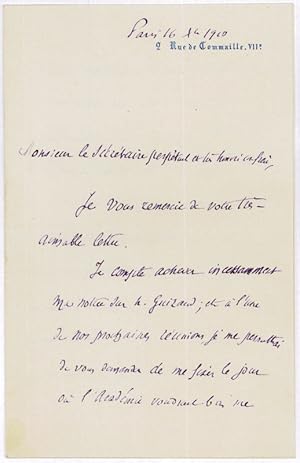 Paris 16 Xbre 1910
2 Rue de Commaille, VIIe.
Monsieur le Secrétaire perpétuel et très honoré
Je vous remercie de votre très
aimable lettre.
Je compte achever incessamment
ma notice sur M. Guizard; et à l'une
de nos prochaines réunions je me permettrai
de vous demander de me fixer le jour
où l'Académie voudrait bien me